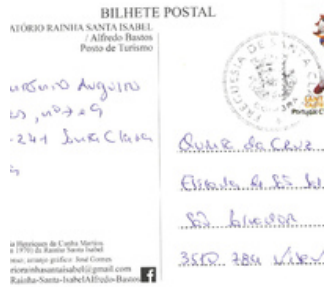 BILHETE POSTAL
ATÓRIO RAINHA SANTA ISABEL
/ Alfredo Bastos
Posto de Turismo
FREGUESIA DE SANTA CL
Portugal C
António Augusto
nº 7 e 9
-241 Santa Clara
Quinta da Cruz
Estrada de São Sal
São Salvador
3510 784 Viseu
a Henriques da Cunha Martins
1970) da Rainha Santa Isabel
esso; arranjo gráfico: José Gomes
riorainhasantaisabel@gmail.com
Rainha-Santa-IsabelAlfredo-Bastos f